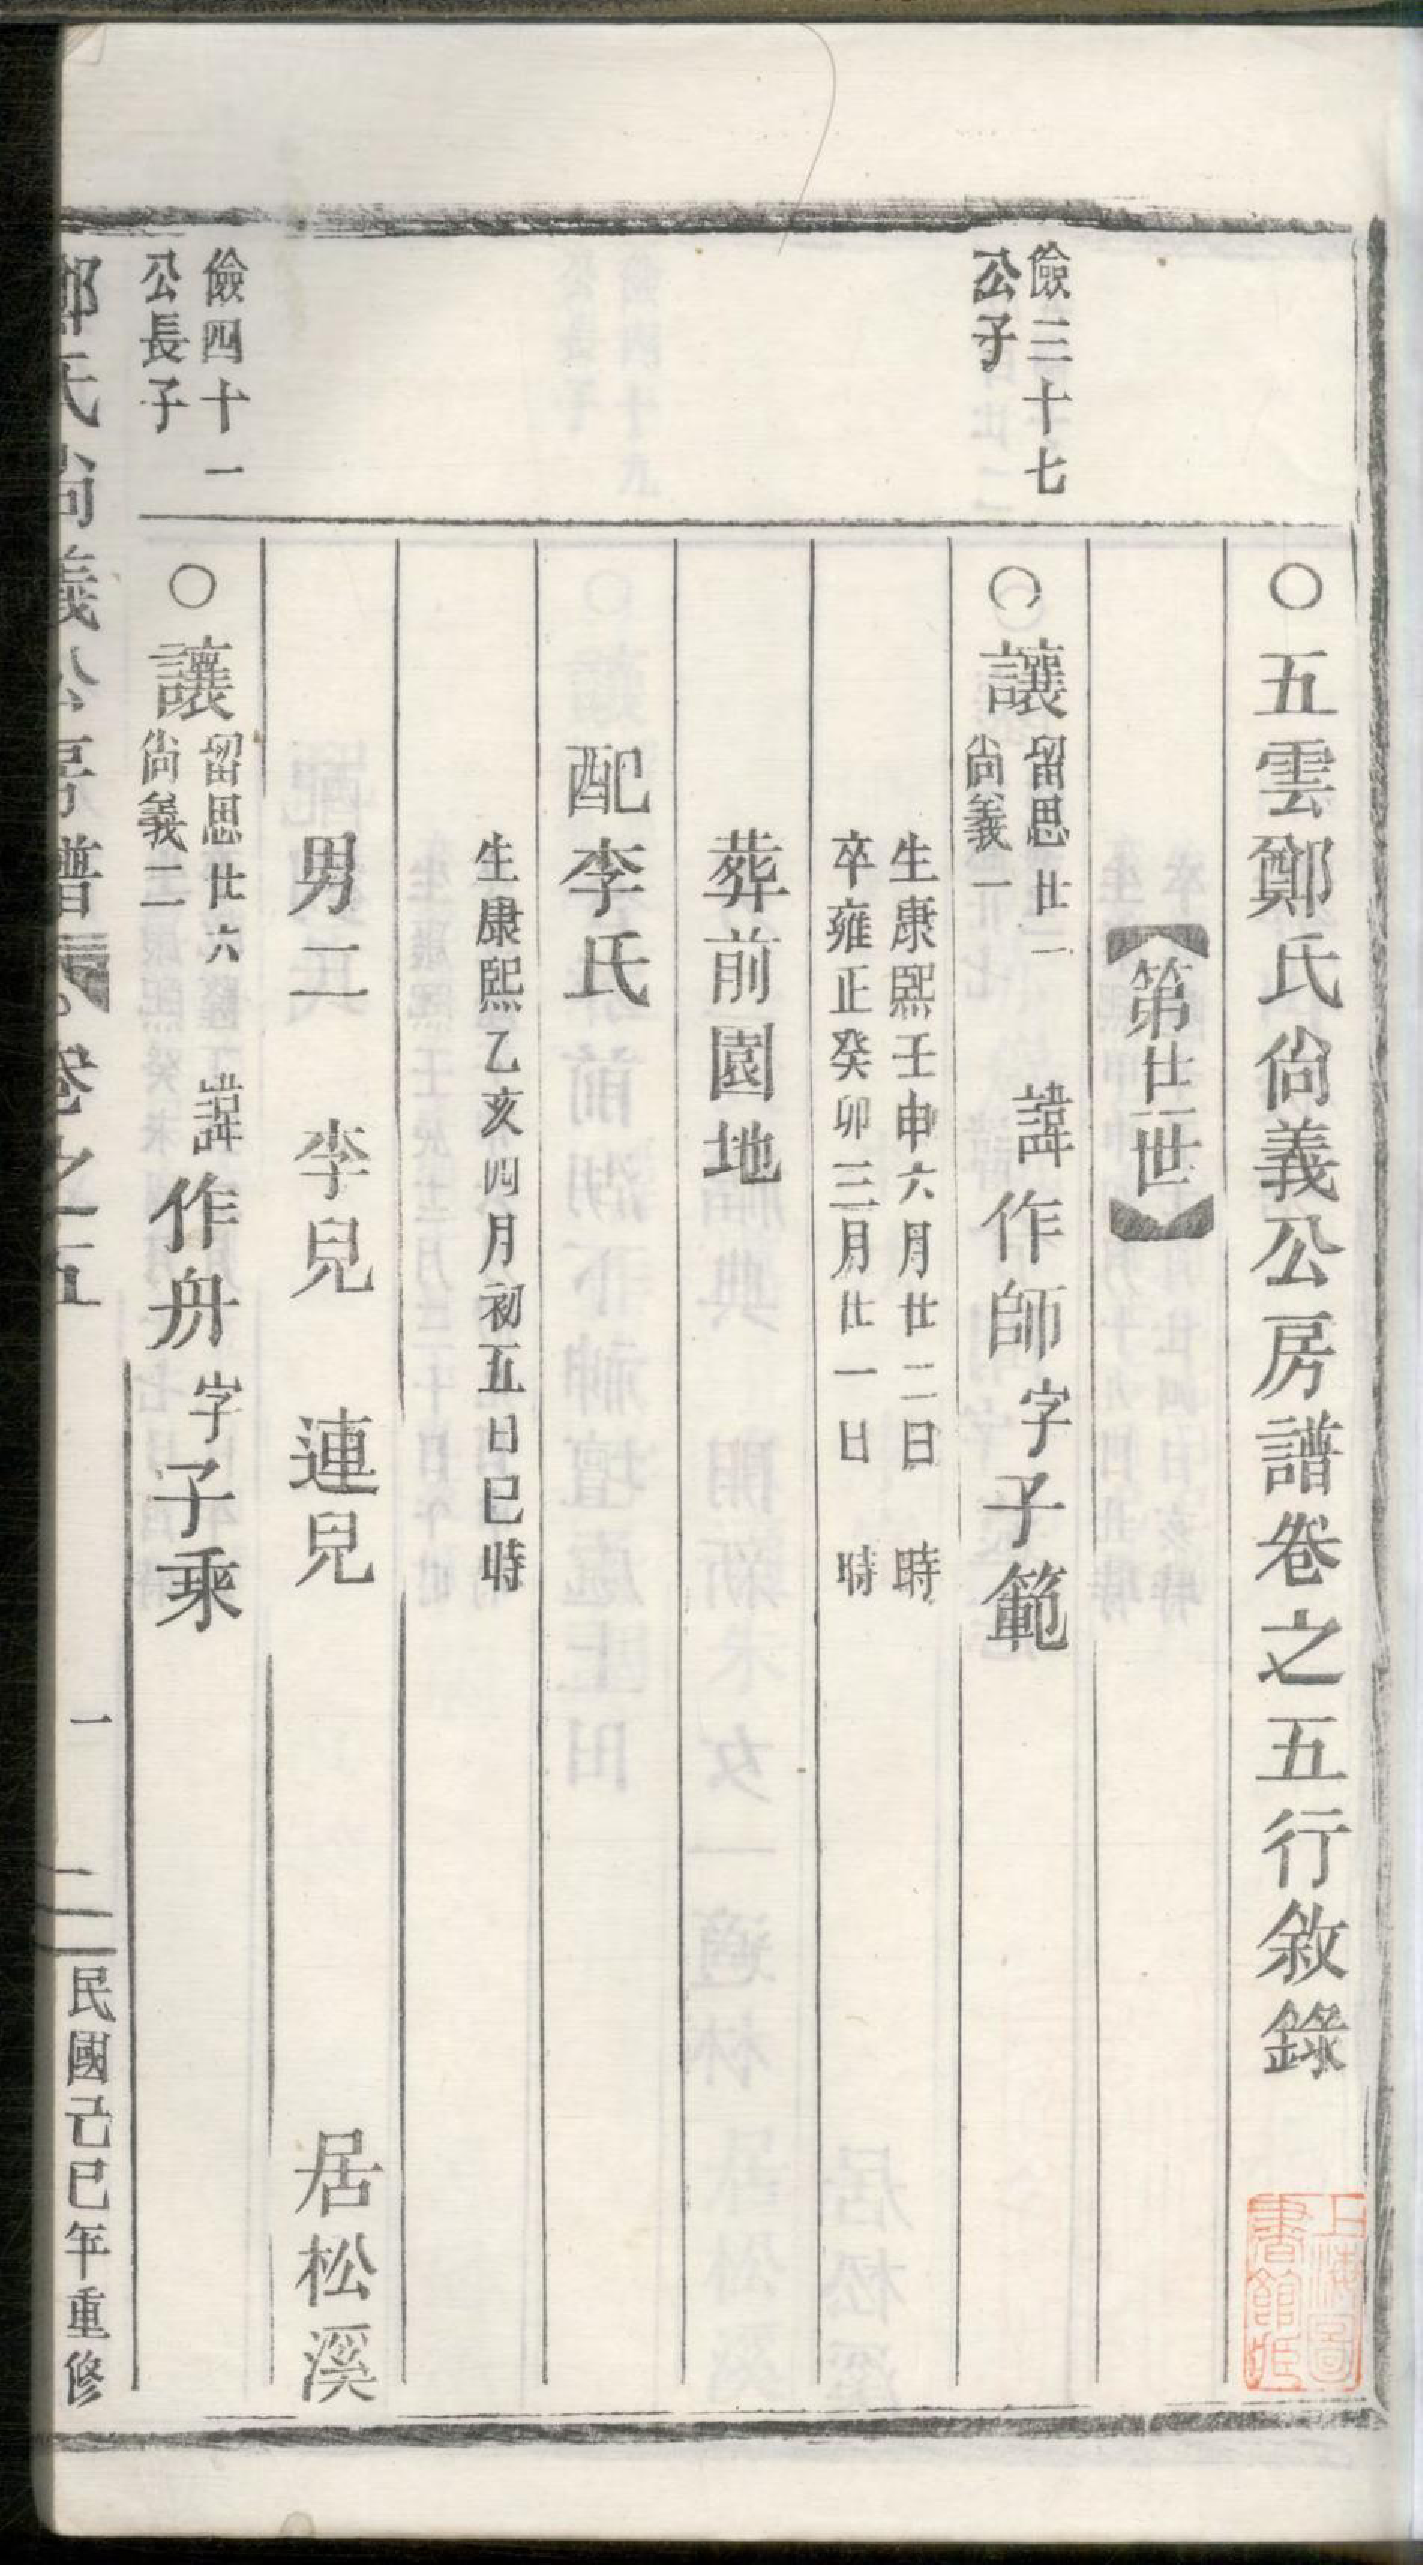 ○五雲鄭氏尙義公房譜卷之五行敘錄
上海圖書館藏
【第廿一世】
儉三十七
公子
○讓
留思廿一
尙義一
諱作師字子範
生康熙壬申六月廿二日 時
卒雍正癸卯三月廿一日 時
葬前園地
配李氏
生康熙乙亥四月初五日巳時
男二 李兒 連兒 居松溪
儉四十一
公長子
○讓
留思廿六
尙義二
諱作舟字子乘
鄭氏尙義公房譜 卷之五
一
民國己巳年重修